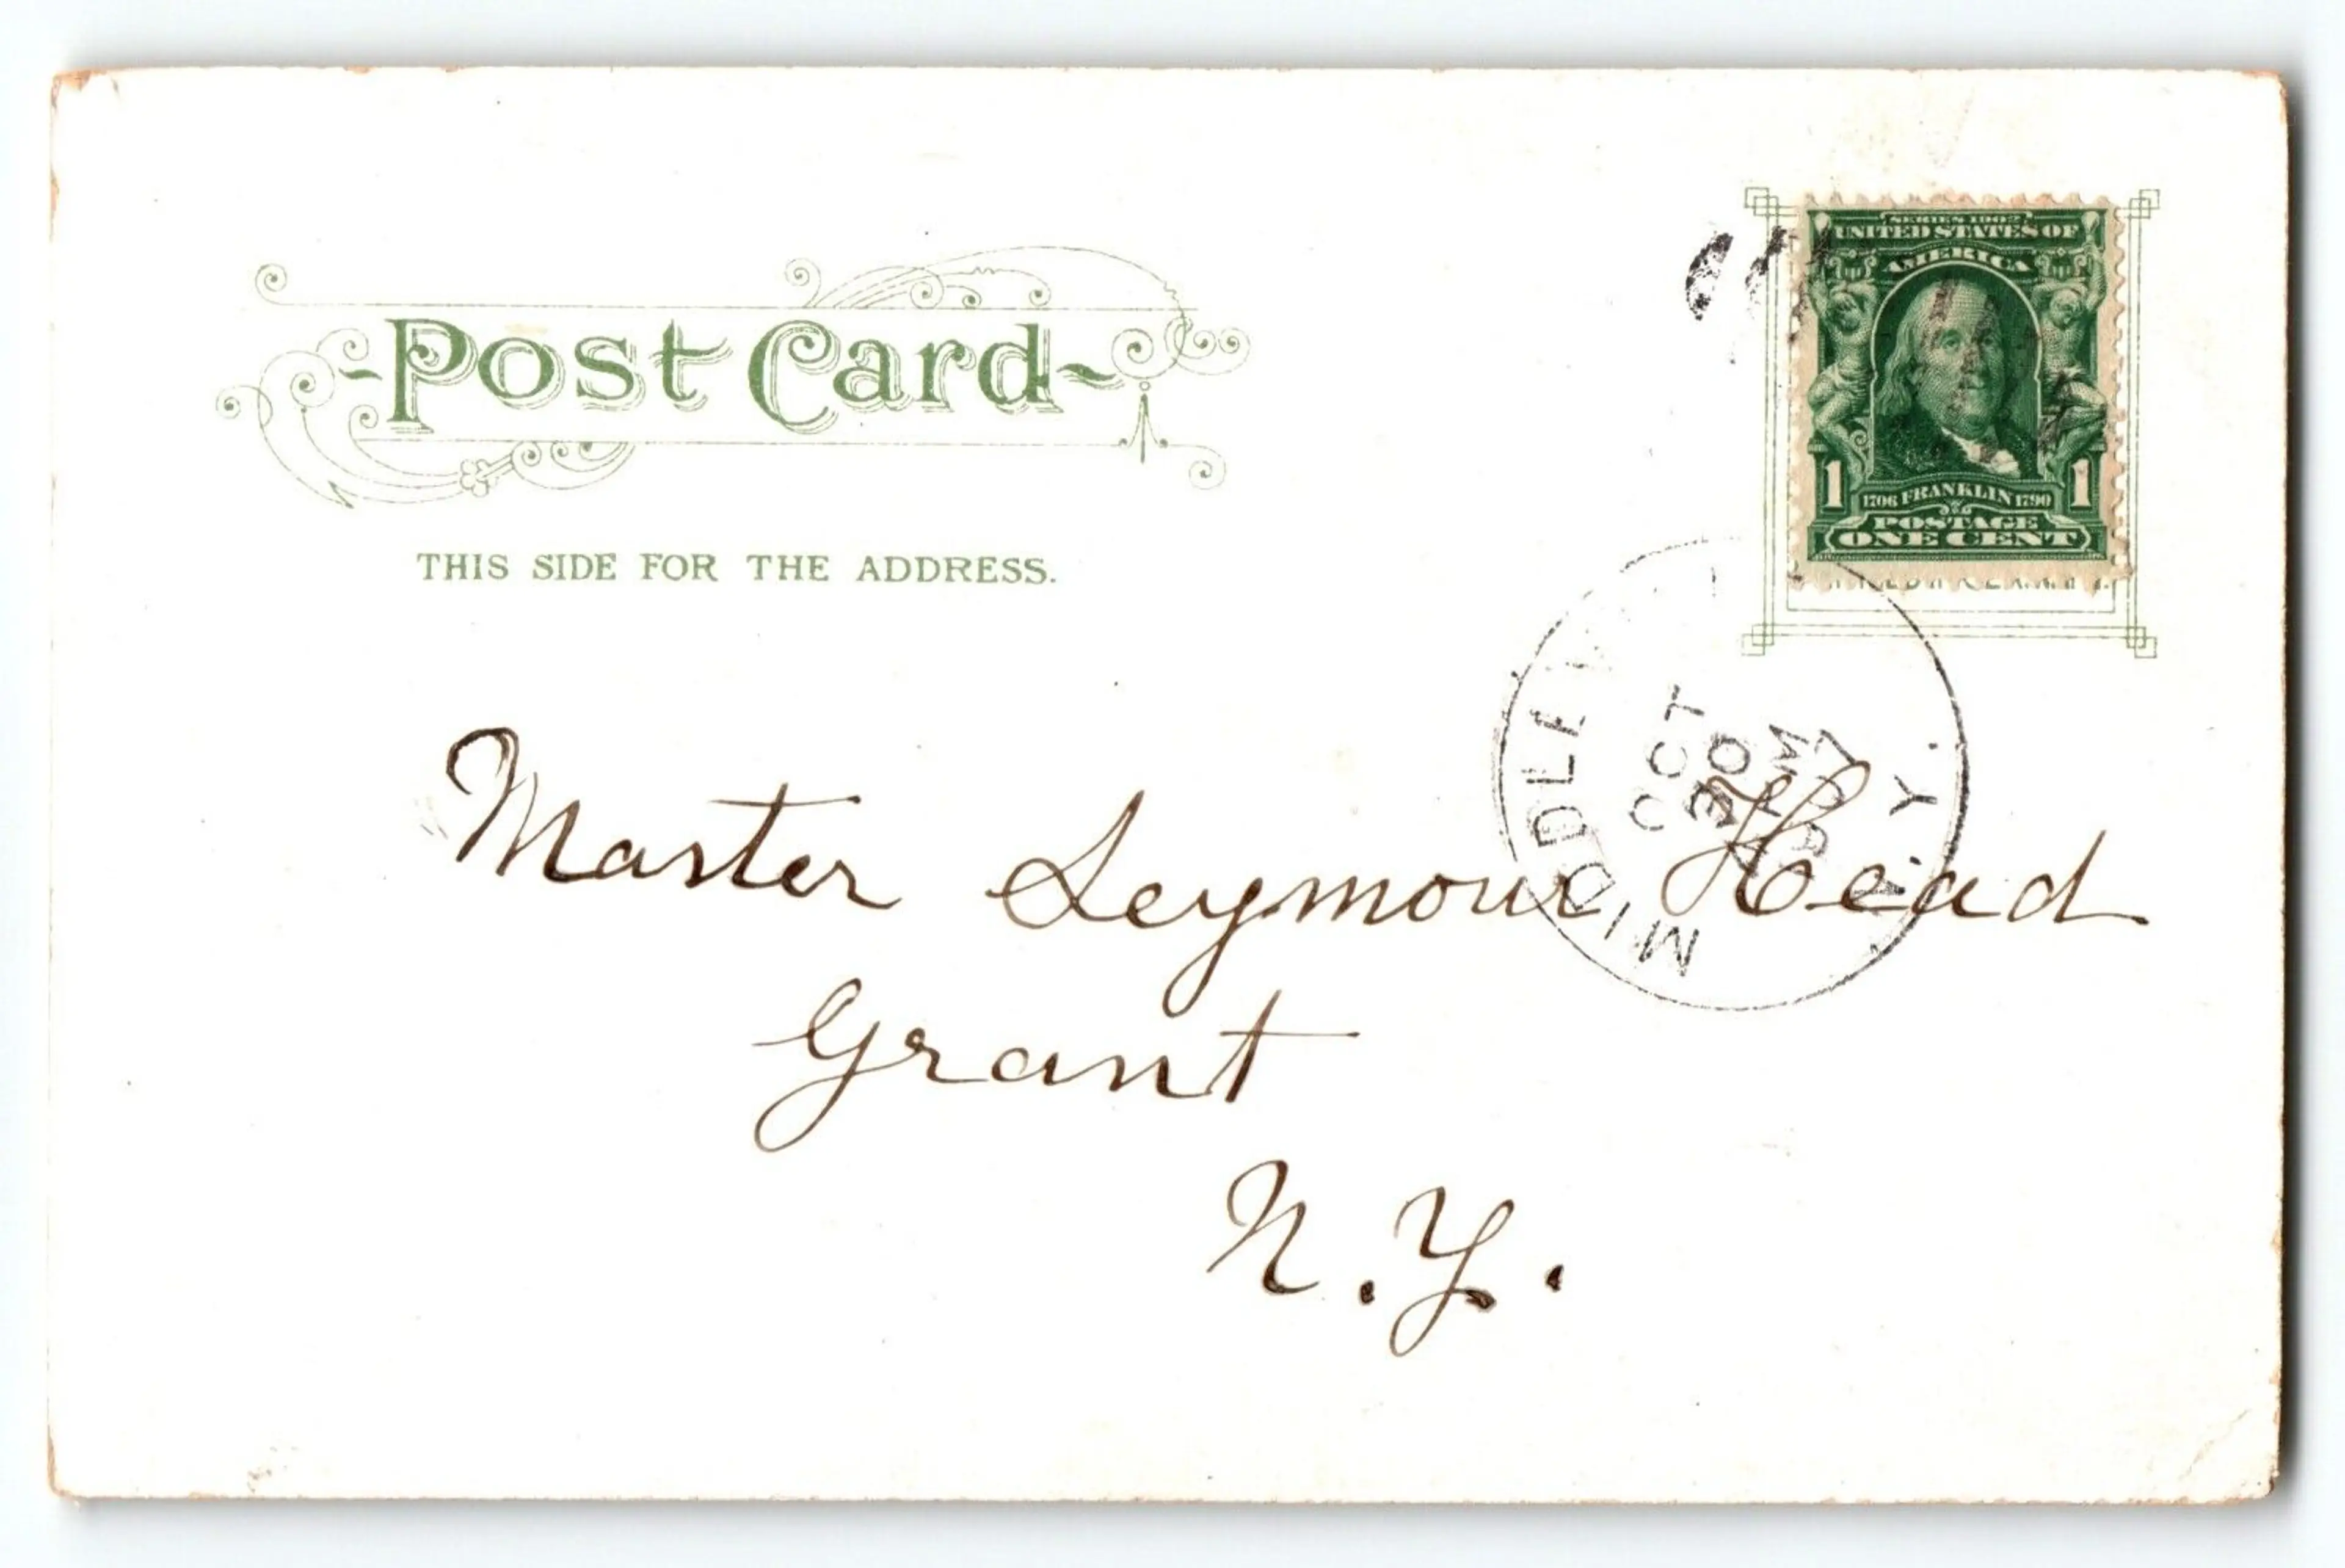 Post Card
THIS SIDE FOR THE ADDRESS.
SERIES 1902
UNITED STATES OF
AMERICA
1 1706 FRANKLIN 1790 1
POSTAGE
ONE CENT
MIDDLEV
OCT
30
AM
07
N.Y.
Master Seymour Head
Grant
N.Y.